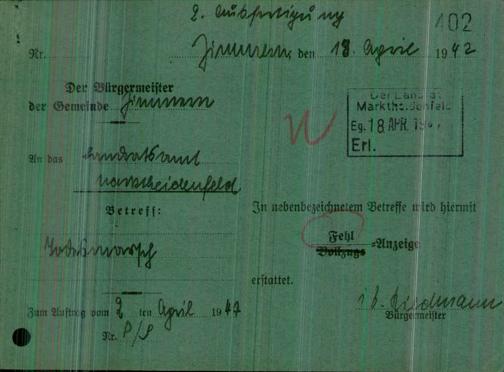 2. Ausfertigung
402
Nr.
Zimmern, den 18. April 1947
Der Bürgermeister
der Gemeinde Zimmern
Der Landrat
Marktheidenfeld
Eg. 18 APR. 194
Erl.
An das Landratsamt
Marktheidenfeld
Betreff:
Todesmarsch
In nebenbezeichnetem Betreffe wird hiermit
Fehl
Vollzugs -Anzeige
erstattet.
Zum Auftrag vom 2 ten April 1947
Nr. P/P
Bürgermeister